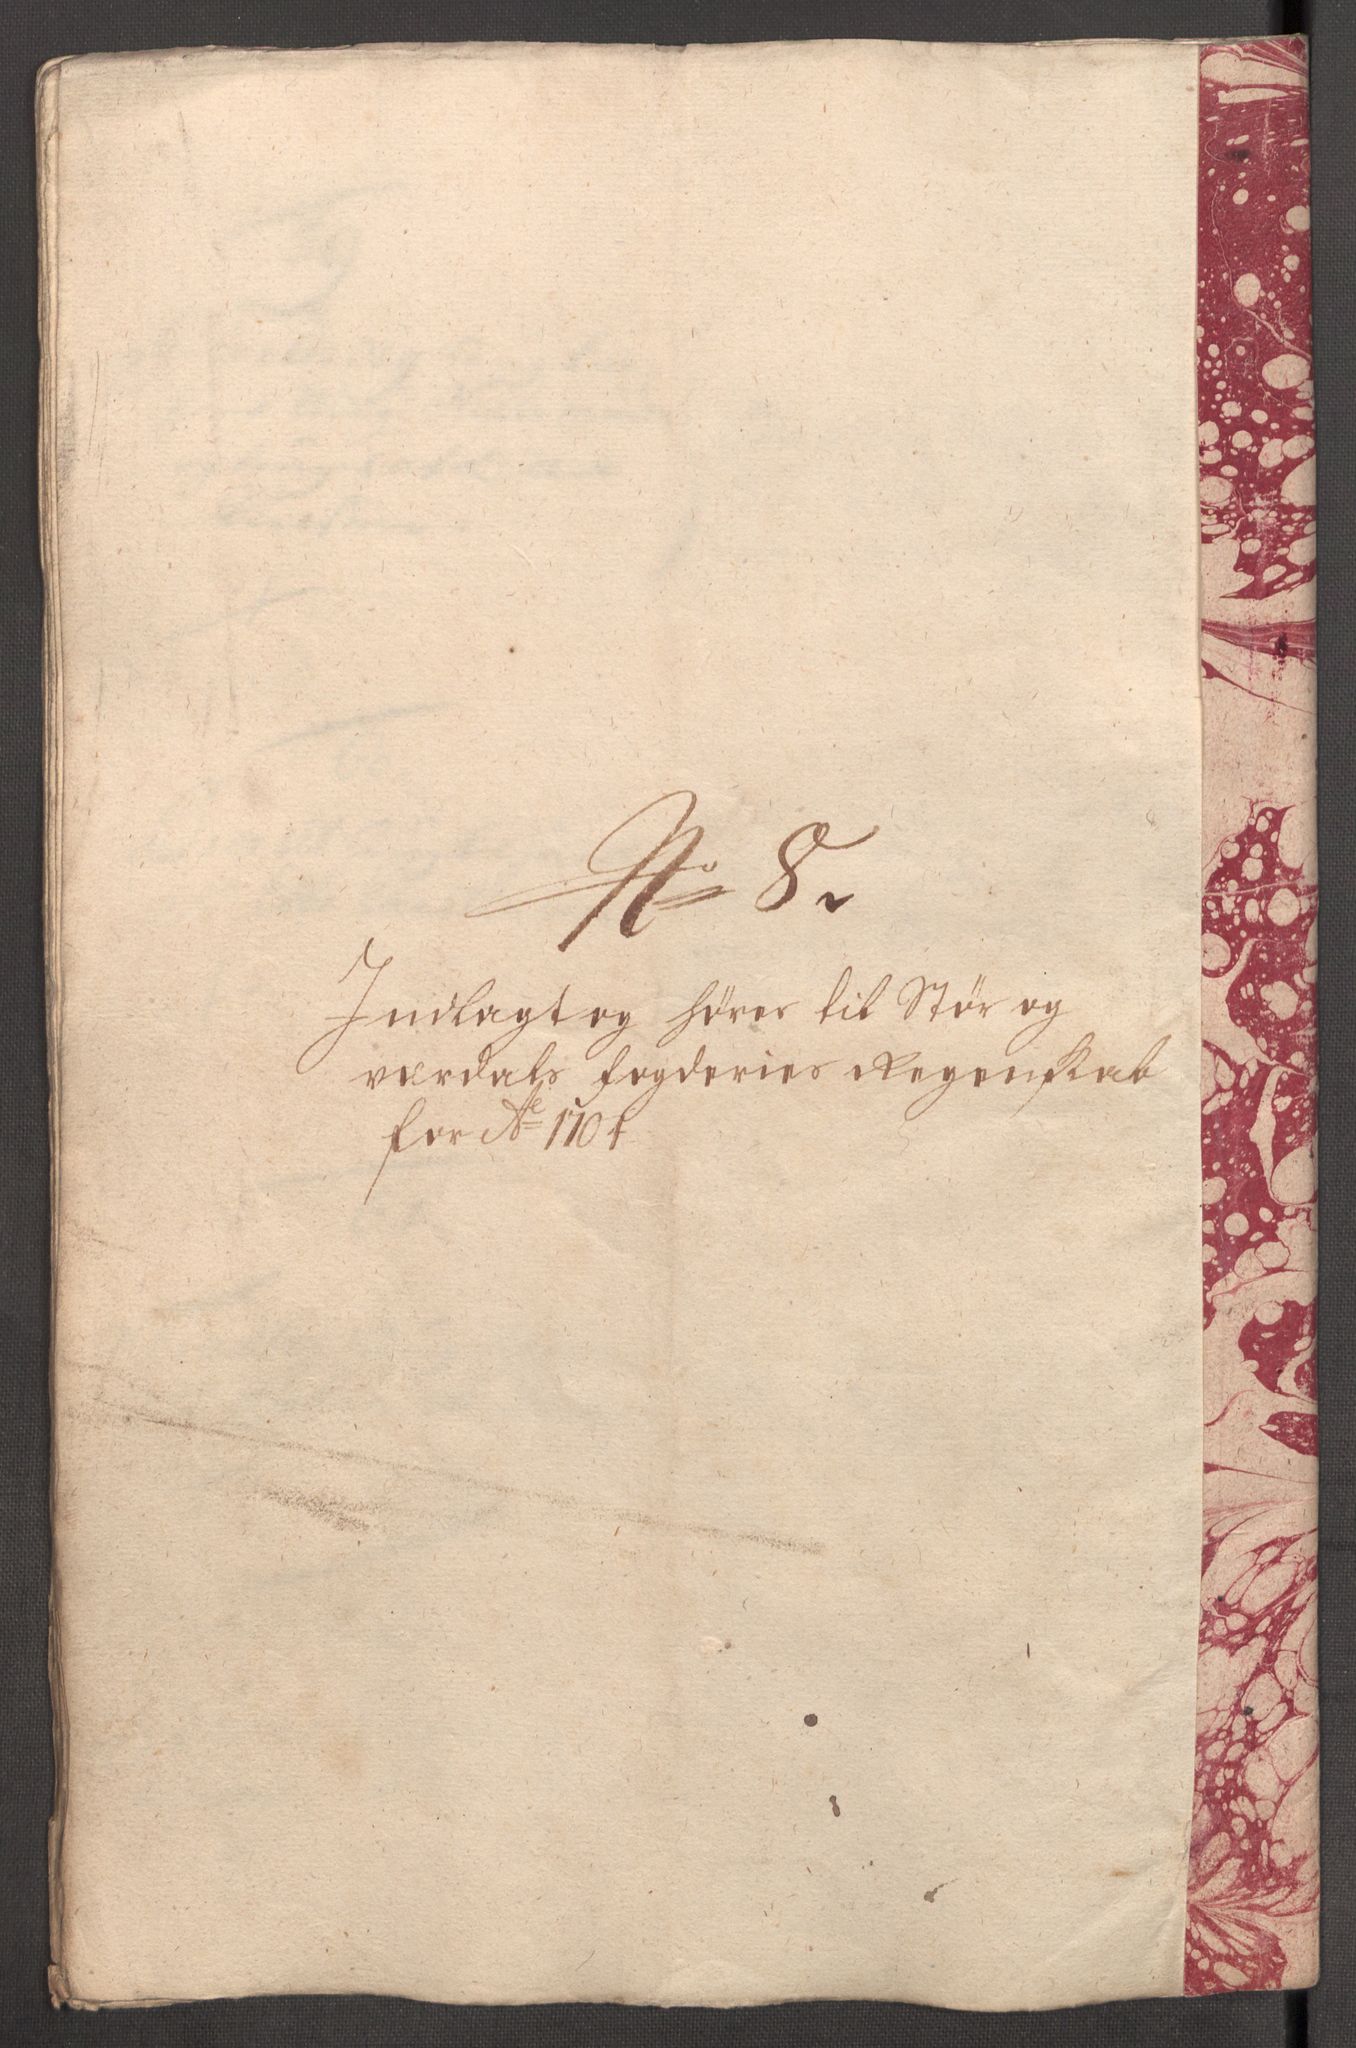 No 8.
Indlagt og hører til Stør og
værdals fogderies Regenskab
for Ao 1704